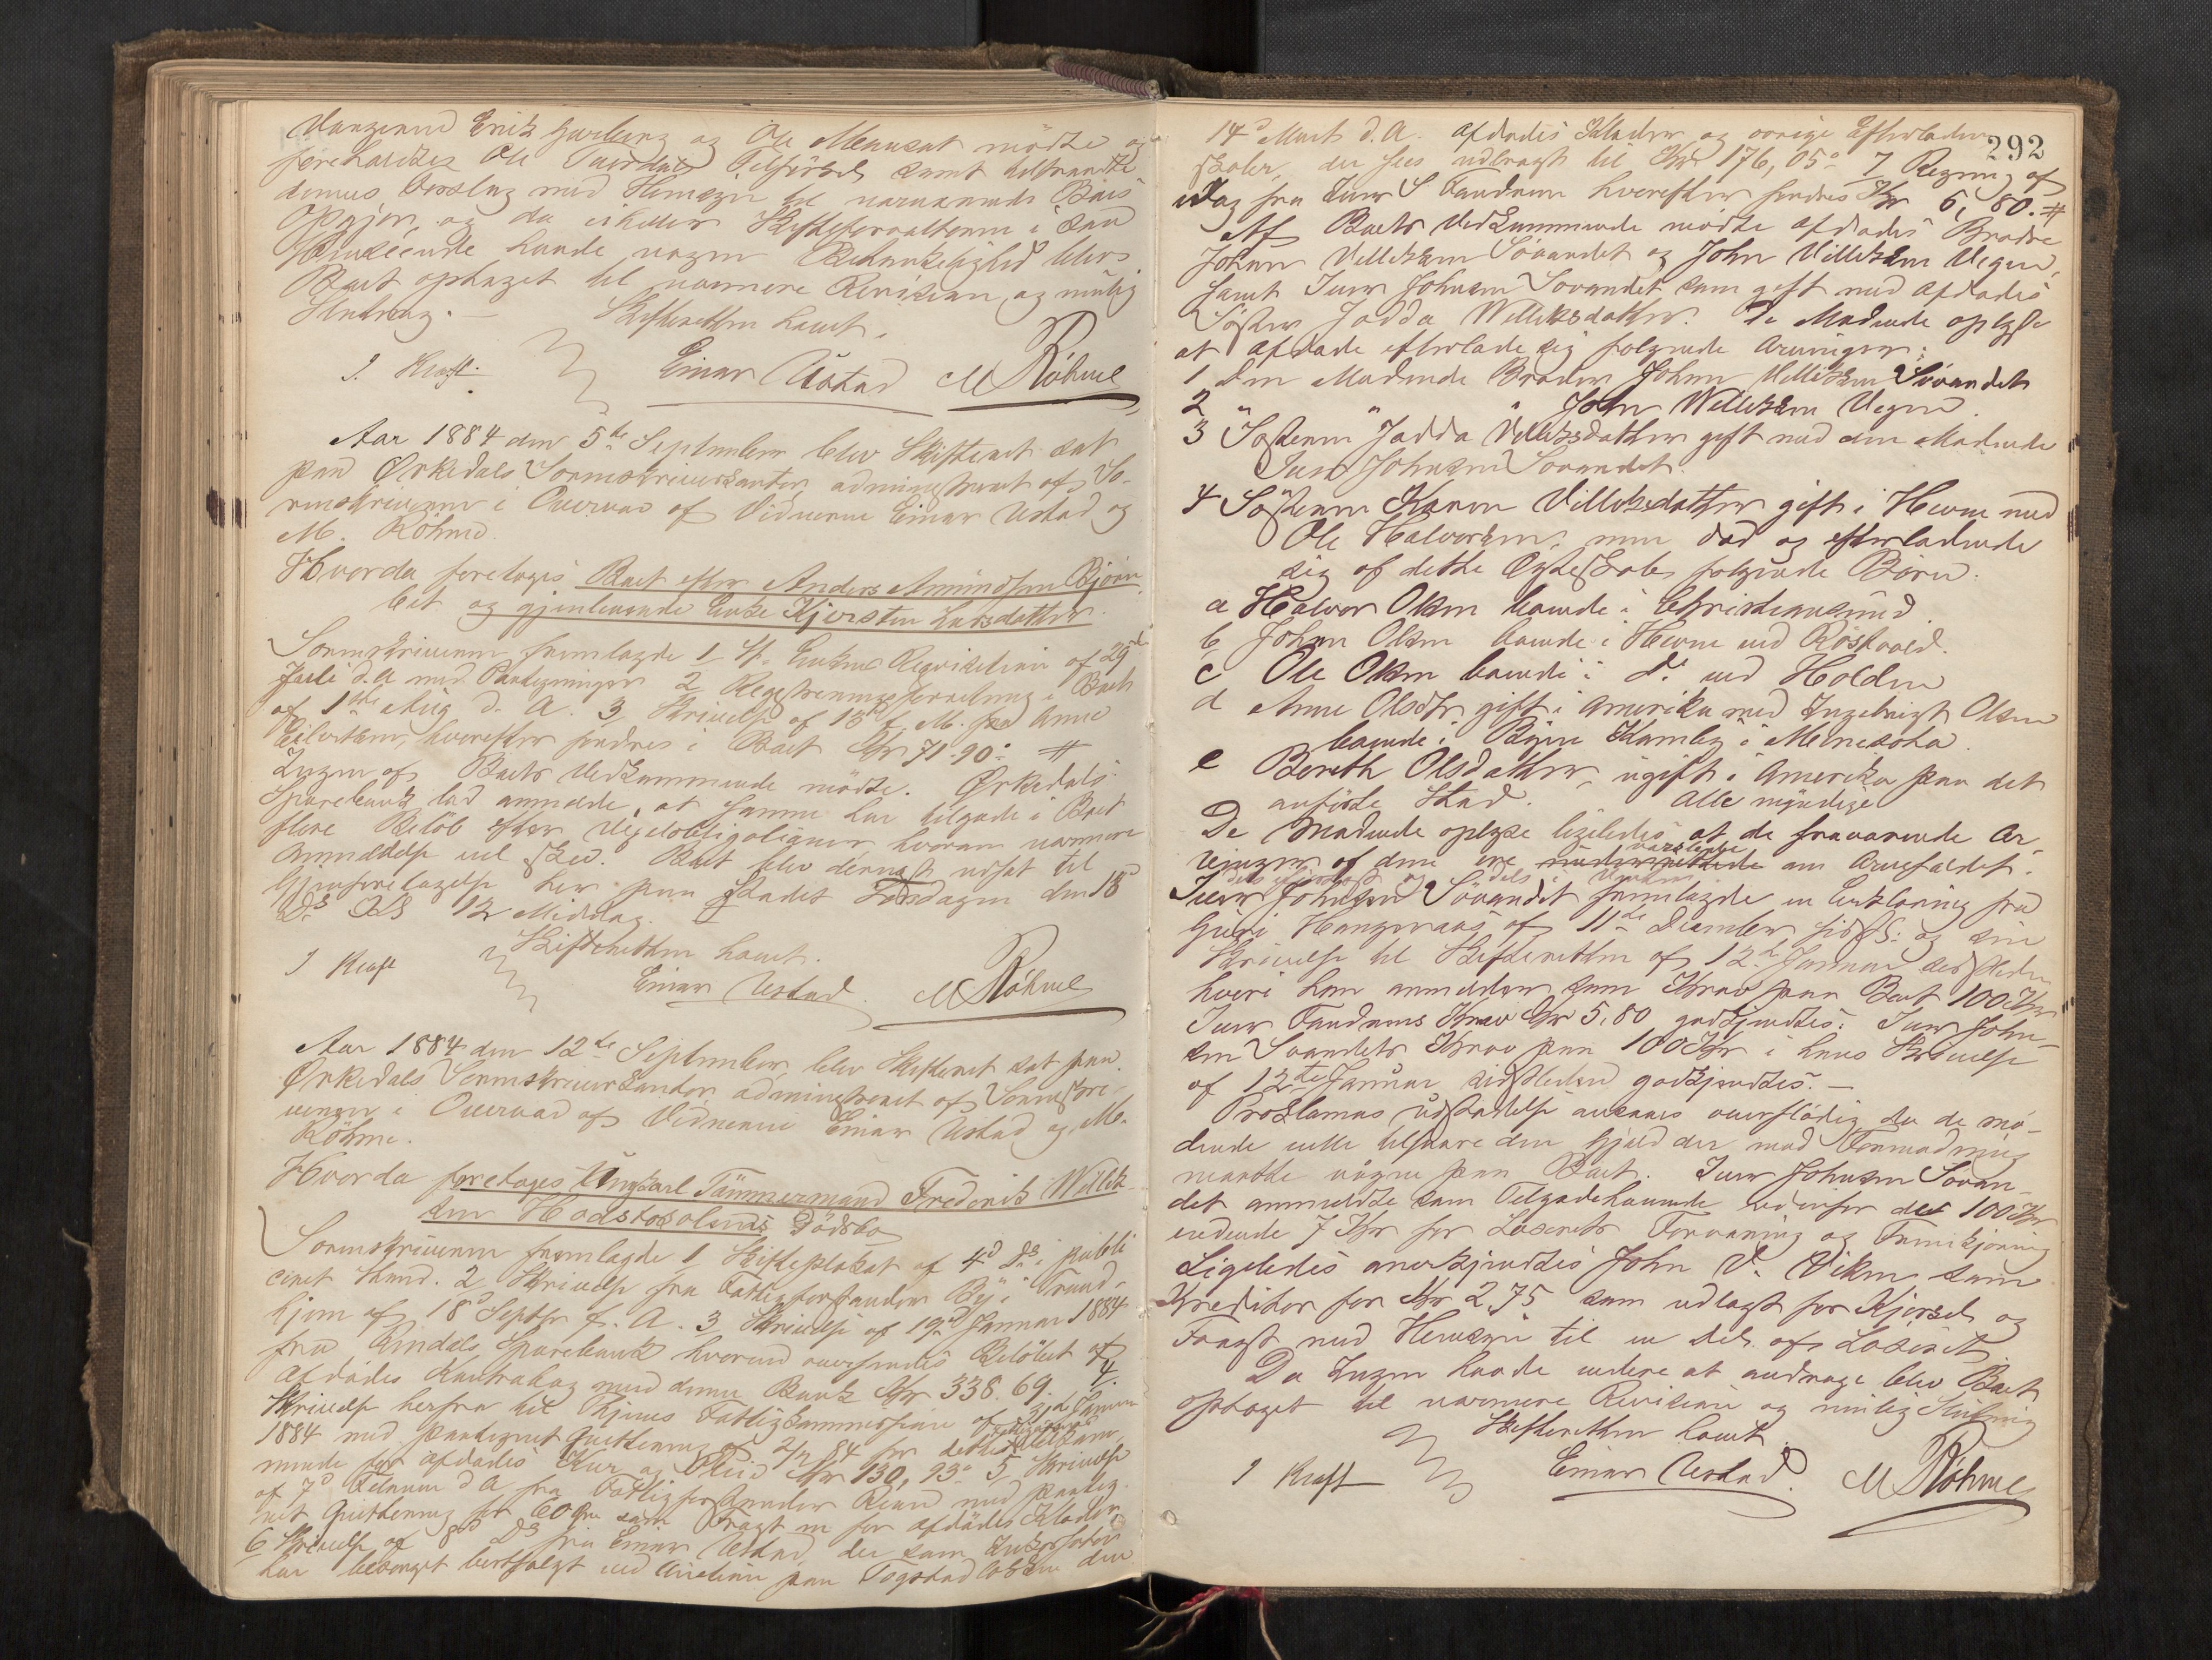 Erik og Ole mödte og
foreholdtes Ole Tilförsel samt
Forslag med Hensyn til Boets
Opgjør, og da Skifteforvalteren i
havde nogen Betænkelighed blev
Boet optaget til nærmere Revision og mulig
Slutning. — Skifteretten hævet.
I. Kraft. Einar Ustad M Röhme
Aar 1884 den 5te September blev Skifteret sat
paa Ørkedals Sorenskriverkontor, administreret af So-
renskriveren i Overvær af Vidnerne Einar Ustad og
M. Röhme.
Hvorda foretoges Boet efter Anders Amundsen Björn-
bet og gjenlevende Enke Kjersten Larsdatter.
Sorenskriveren fremlagde 1 Enkens Reqvisition af 29d
Juli d. A med Paategninger 2 Registreringsforretning i Boet
af 1ste Aug d. A. 3 Skrivelse af 15d f. M. fra Anne
Eilertsen, hvorefter fordres i Boet Kr 71.90.
Ingen af Boets Vedkommende mödte. Ørkedals
Sparebank lod anmelde, at samme har tilgode i Boet
flere Belöb efter Vexelobligationer, hvorom nærmere
Anmeldelse vil ske. Boet blev dernæst udsat til
Gjenforetagelse her paa Stedet Torsdagen den 18d
Ds Kl 12 Middag.
Skifteretten hævet.
I Kraft Einar Ustad. M Röhme
Aar 1884 den 12te September blev Skifteret sat paa
Ørkedals Sorenskriverkontor, administreret af Sorenskri-
veren i Overvær af Vidnerne Einar Ustad og M.
Röhme.
Hvorda foretoges Ungkarl Tömmermand Frederik Willik-
sen Dödsbo
Sorenskriveren fremlagde 1 Skifteplakat af 4d Ds. publi
ceret 2 Skrivelse fra Fattigforstander By i Trond-
hjem af 18d Septbr f. A. 3 Skrivelse af 19d Januar 1884
fra Rindals Sparebank hvorved oversendes Belöbet af
Afdödes Kontrabog med denne Bank Kr 338.69. 4.
Skrivelse herfra til Thjems Fattigkommission af Januar
1884 med paategnet Qvittering af 2/2 84 for
mende for afdödes Kur og Pleie Kr 130,93. 5 Skrivelse
af 7d Februar d A fra Fattigforstander med paateg-
net Qvittering for 60 Öre som Fragt m for afdödes Klæder,
6 Skrivelse af 8d Ds fra Einar Ustad, der som Inkassator
har besörget bortsolgt ved Auction paa den
292
14d Marts d. A. afdödes Klæder og övrige Efterladen-
skaber, der sees udbragt til Kr 176,05. 7 Regning af
idag fra Iver S Fandrem hvorefter fordres Kr 5,80.
Af Boets Vedkommende mödte afdödes Brödre
Johan Villiksen Sövandet og John Villiksen Vegen,
samt Iver Johnsen Sövandet som gift med afdödes
Söster Jadda Williksdatter. De Mödende oplyste
at afdöde efterlod sig fölgende Arvinger:
1 Den Mödende Broder Johan Villiksen Sövandet
2 " " " John Williksen Vegen.
3 Söstern Jadda Villiksdatter gift med den Mödende
Iver Johnsen Sövandet.
4 Söstern Karen Villiksdatter gift i Hevne med
Ole Halvorsen, nu död og efterladende
sig af dette Ægteskab fölgende Börn.
a Halvor Olsen boende i Christiansund.
b Johan Olsen boende i Hevne ved Röstvold.
c Ole Olsen boende i do. ved Holden
d Anne Olsdtr gift i Amerika med Ingebrigt Olsen
boende i i Minesota.
e Bereth Olsdatter, ugift i Amerika paa det
anförte Sted. Alle myndige
De Mödende oplyste ligeledes at de fraværende Ar-
vinger af dem ere varslede om Arvefaldet.
Iver Johnsen Sövandet fremlagde en Erklæring fra
Guri af 11te December sidstl. og sin
Skrivelse til Skifteretten af 12te Januar sidstleden
hvori han anmelder som Krav paa Boet 100 Kr
Iver Fandrems Krav Kr 5,80 godkjendtes. Iver John-
sen Sövandets Krav paa 100 Kr i hans Skrivelse
af 12te Januar sidstleden godkjendtes. —
Proklamas Udstædelse ansaaes overflödig da de mö-
dende ville tilsvare den Gjæld der mod Formodning
maatte paa Boet. Iver Johnsen Sövan-
det anmeldte som Tilgodehavende udenfor de 100 Kr
endnu 7 Kr for Lösörets Forvaring og Fremkjöring
Ligeledes anerkjendtes John V. som
Kreditor for Kr 2,75 som udlagt for Kjörsel og
Fragt med Hensyn til en Del af Lösöret.
Da Ingen havde videre at andrage blev Boet
optaget til nærmere Revision og mulig Slutning
Skifteretten hævet.
I Kraft Einar Ustad. M Röhme